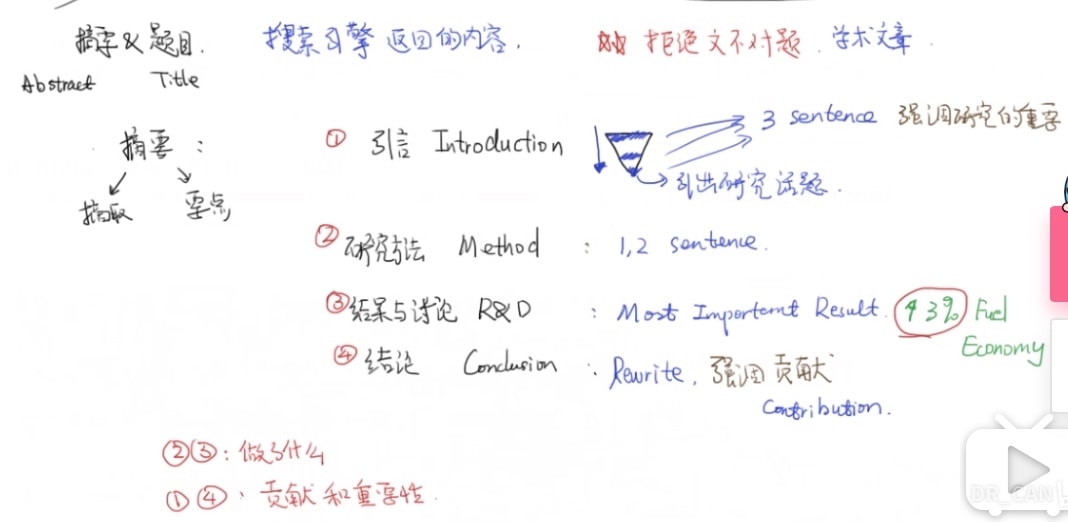 摘要&题目. 搜索引擎返回的内容. 拒绝文不对题. 学术文章.
Abstract Title
摘要:
摘取 要点
① 引言 Introduction 3 sentence 强调研究的重要
引出研究话题.
② 研究方法 Method : 1,2 sentence.
③ 结果与讨论 R&D : Most Important Result. 43% Fuel
Economy
④ 结论 Conclusion : Rewrite, 强调贡献
Contribution.
②③: 做了什么
①④: 贡献和重要性.
DR_CAN